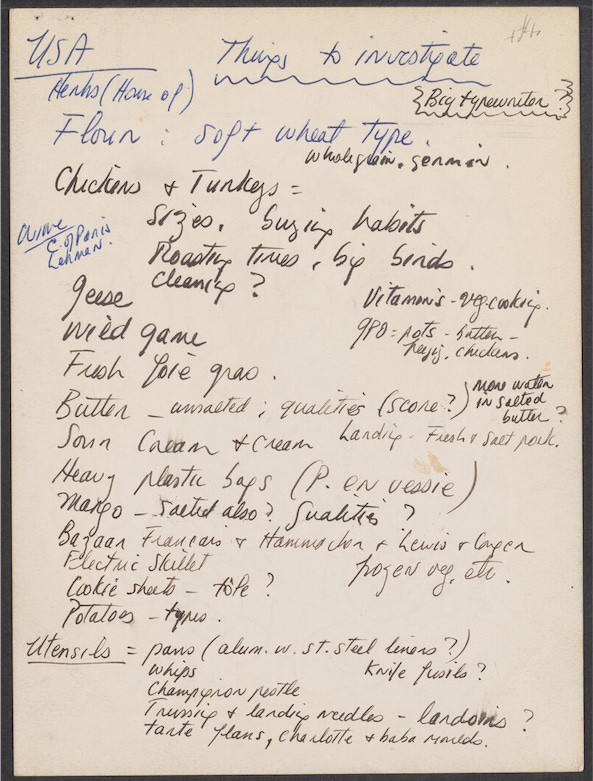 USA Things to investigate
Herbs (House of)
Big typewriter?
Flour: soft wheat type.
wholegrain, germ in.
Chickens & Turkeys =
Sizes, buying habits
Wine
C. of Paris
Lehman.
Roasting times, big birds.
cleaning?
Geese
Vitamins - veg. cooking.
Wild game
GPO = pots - butter -
freezig, chickens.
Fresh foie gras.
Butter - unsalted; qualities (score?)
more water
in salted
butter?
Sour Cream & Cream Larding - Fresh & salt pork.
Heavy plastic bags (P. en vessie)
Margo - salted also? Qualities?
Bazaar Francais & Hammacher & Lewis & Conger
Electric Skillet frozen veg, etc.
Cookie sheets - tôle?
Potatoes - types.
Utensils = pans (alum. w. st. steel liners?)
whips Knife fusils?
Champignon pestle
Trussing & larding needles - lardoirs?
tarte flans, charlotte & baba moulds.